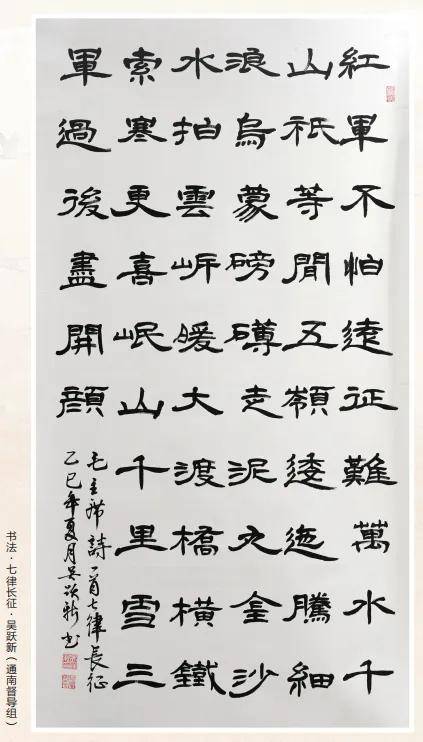 紅軍不怕遠征難萬水千
山祇等閒五嶺逶迤騰細
浪烏蒙磅礴走泥丸金沙
水拍雲崖暖大渡橋橫鐵
索寒更喜岷山千里雪三
軍過後盡開顏
毛主席詩一首七律長征
乙巳年夏月吴跃新书
书法·七律长征·吴跃新（通南督导组）